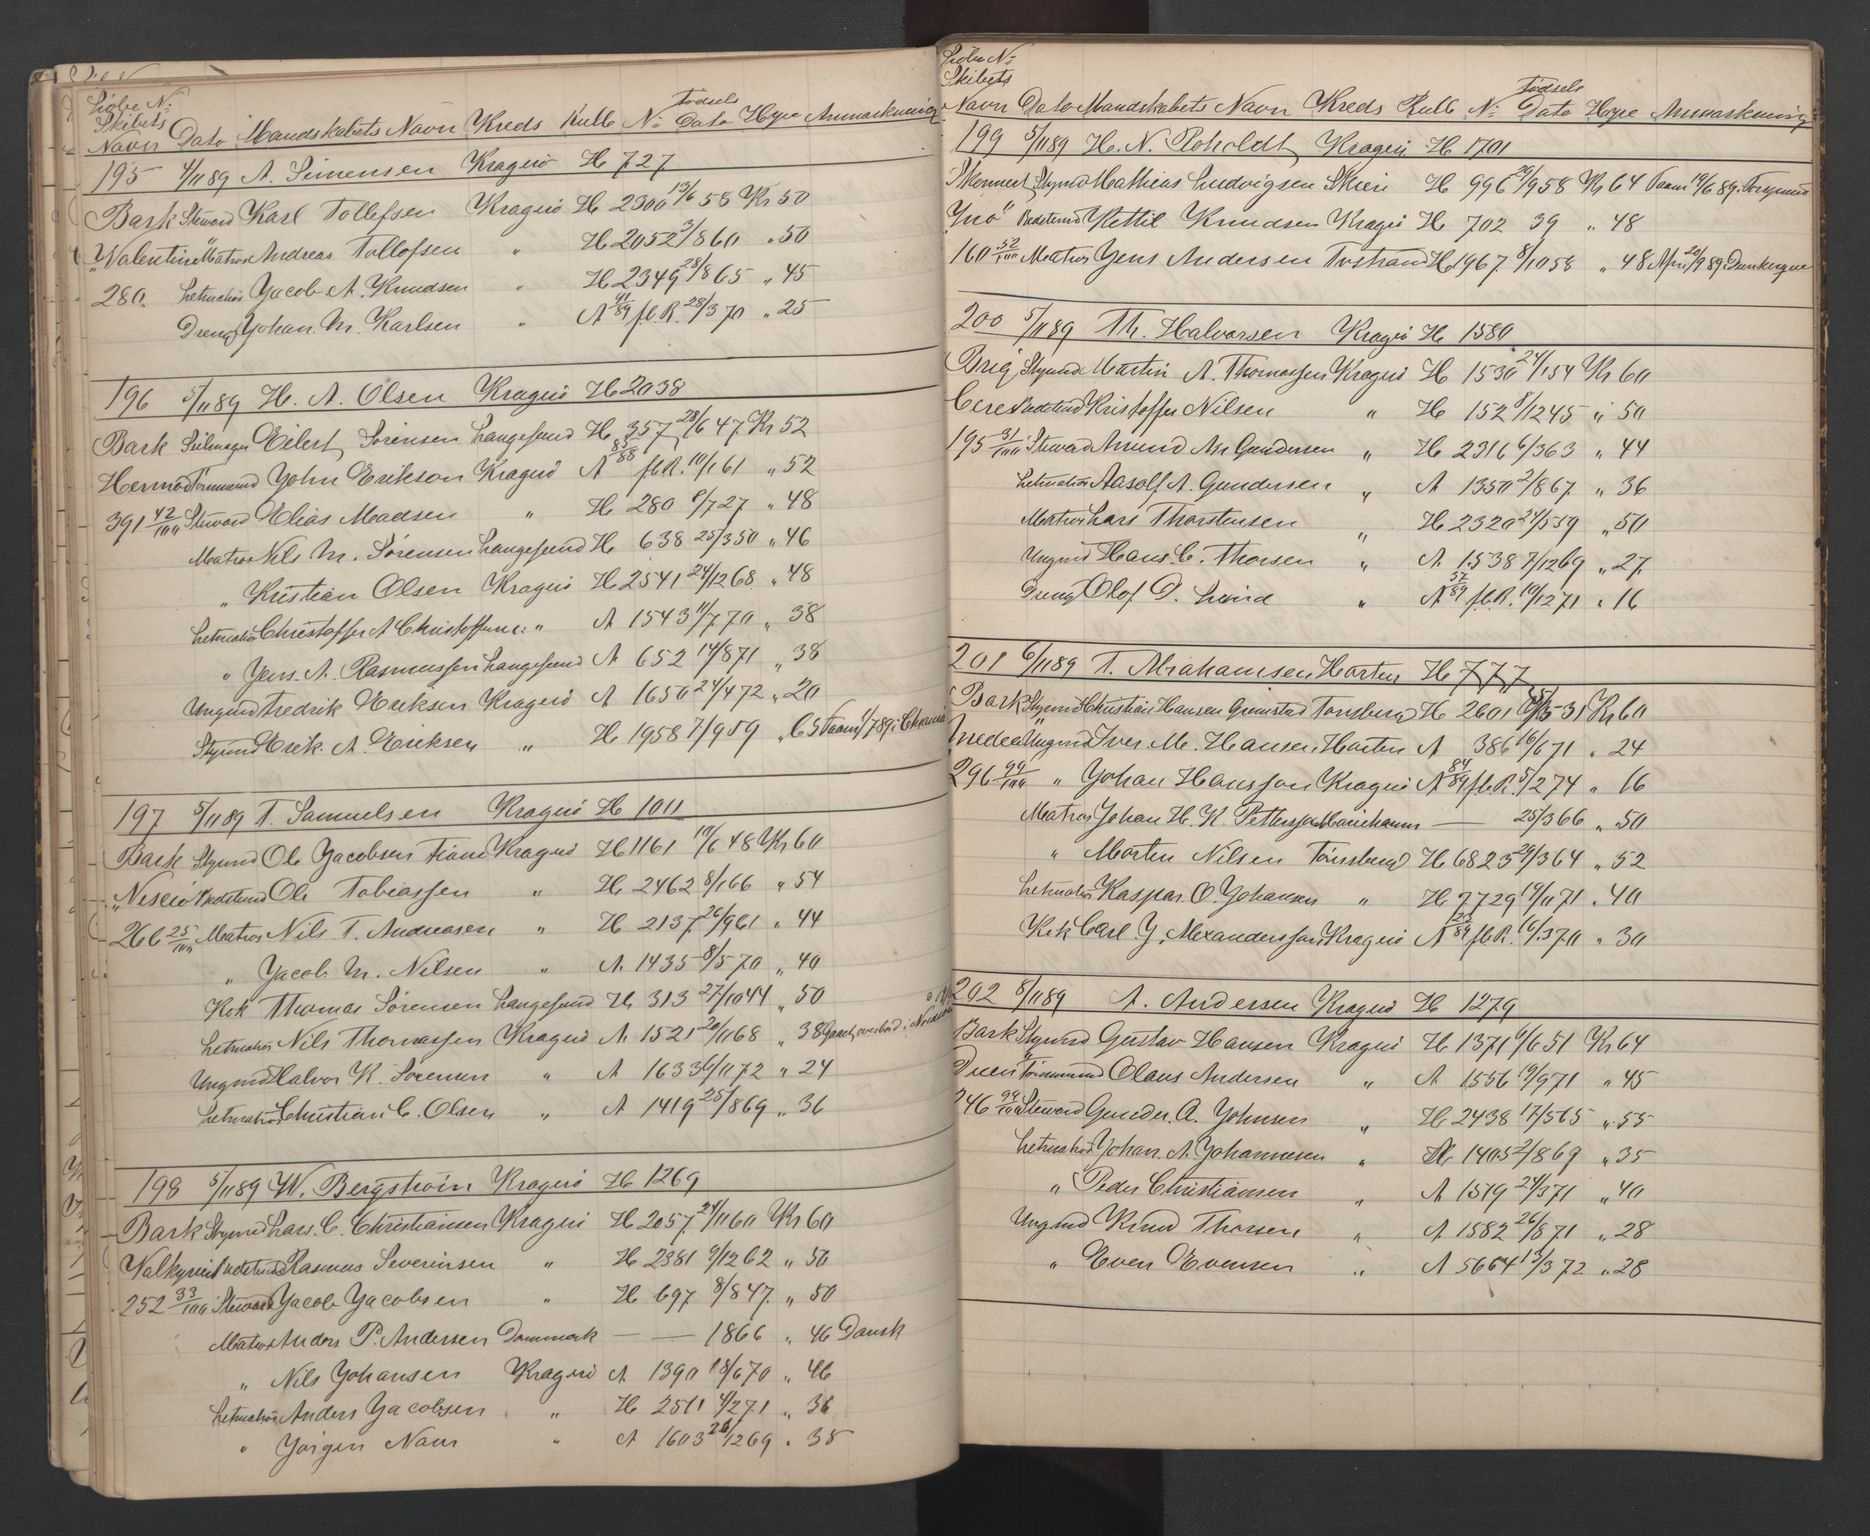 Løbe No
Skibets
Navn Dato Mandskabets Navn Kreds Rulle No Fødsels Dato Hyre Anmærkning
195 4/11 89 A. Simensen Kragerø H 727
Bark Steward Karl Tollefsen Kragerø H 2300 13/6 58 Kr 50
"Valentine" Matros Andreas Tollofsen " H 2052 3/8 60 " 50
280. Letmatros Jacob A. Knudsen " H 2349 28/8 65 " 45
Dreng Johan M. Karlsen " A 91/89 fl.R. 28/3 70 " 25
196 5/11 89 H. A. Olsen Kragerø H 2038
Bark Seilmager Eilert Sørensen Langesund H 357 28/6 47 Kr 52
Hermod Tømmermd John Erikson Kragerø A 85/88 fl.R. 10/1 61 " 52
391 42/100 Steward Elias Madsen " H 280 8/7 27 " 48
Matros Nils M. Sørensen Langesund H 638 25/3 50 " 46
" Kristian Olsen Kragerø H 2541 24/12 68 " 48
Letmatros Christoffer A Christoffersen " A 1543 11/7 70 " 38
" Jens A. Rasmussen Langesund A 652 14/8 71 " 38
Ungmd Fredrik Eriksen Kragerø A 1650 24/4 72 " 20
Styrmd Erik A. Eriksen " H 1958 7/9 59 " 65
197 5/11 89 T. Samuelsen Kragerø H 1011
Bark Styrmd Ole Jacobsen Kragerø H 1161 10/6 48 Kr 60
Bedstmd Ole Tobiassen " H 2462 8/1 66 " 54
266 25/100 Matros Nils T. Andreasen " H 2137 26/9 61 " 44
" Jacob M. Nilsen " A. 1435 8/5 70 " 40
Kok Thomas Sørensen Langesund H 313 27/10 44 " 50
Letmatros Nils Thomassen Kragerø A 1521 20/11 68 " 38
Ungmd Halvor K. Sørensen " A 1633 6/11 72 " 24
Letmatros Christian C. Olsen " A 1419 25/8 69 " 36
198 5/11 89 W. Bergstrøm Kragerø H 1269
Bark Styrmd Lars C. Christiansen Kragerø H 2057 24/11 60 Kr 60
Valkyrien Bedstmd Rasmus Severinsen " H 2381 9/12 62 " 50
252 33/100 Steward Jacob Jacobsen " H 697 8/8 47 " 50
Matros Anders P. Andersen Danmark — — 1866 " 46 Dansk
" Nils Johansen Kragerø A 1390 18/6 70 " 46
Letmatros Anders Jacobsen " H 2511 4/2 71 " 36
" Jørgen " A 1603 26/12 69 " 35
Løbe No
Skibets
Navn Dato Mandskabets Navn Kreds Rulle No Fødsels Dato Hyre Anmærkning
199 5/11 89 H. N. Roholdt Kragerø H 1701
Styrmd Mathias Ludvigsen Skien H 996 20/9 58 Kr 64
Bedstmd Kettil Knudsen Kragerø H 702 39 " 48
160 52/100 Matros Jens Andersen Tvstrand H 1967 8/10 58 " 48 Afm. 20/9 89 Dunkerque
200 5/11 89 Th. Halvorsen Kragerø H 1580
Brig Styrmd Martin A. Thomassen Kragerø H 1530 24/1 54 Kr 60
Ceres Bedstmd Kristoffer Nilsen " H 152 8/12 45 " 50
195 31/100 Steward Amund An Gundersen " H 2316 6/3 63 " 44
Letmatros Aasolf A. Gundersen " A 1350 2/8 67 " 36
Matros Lars Thorstensen " H 2320 24/5 59 " 50
Ungmd Hans C. Thorsen " A 1538 7/12 69 " 27
Dreng Olof D. Lund " A 57/89 fl.R. 10/12 71 " 16
201 6/11 89 T. Abrahamsen Horten H 777
Bark Styrmd Christian Hansen Grimstad Tønsberg H 2601 31 Kr 60
Medea Ungmd Iver M. Hansen Horten A 386 16/6 71 " 24
296 99/100 " Johan Hansson Kragerø A 84/89 fl.R. 5/2 74 " 16
Matros Johan H. K. Pettersson Mariehamn — 25/3 66 " 50
" Morten Nilsen Tønsberg H 6823 29/3 64 " 52
Letmatros Kaspar O. Johansen " H 7729 19/11 71 " 40
Kok Carl J. Alexandersson Kragerø A 23/89 fl.R. 16/3 70 " 30
202 8/11 89 A. Andersen Kragerø H 1279
Bark Styrmd Gustav Hansen Kragerø H 1371 6/6 51 Kr 64
Tømmermd Olaus Andersen " A 1556 19/9 71 " 45
246 94/100 Steward Gunder A. Johnsen " H 2438 17/5 65 " 55
Letmatros Johan A. Johannesen " A 1405 2/8 69 " 35
" Peder Christiansen " A 1519 24/3 71 " 40
Ungmd Knud Thorsen " A 1582 26/8 71 " 28
" Even Evensen " A 5664 13/3 72 " 28